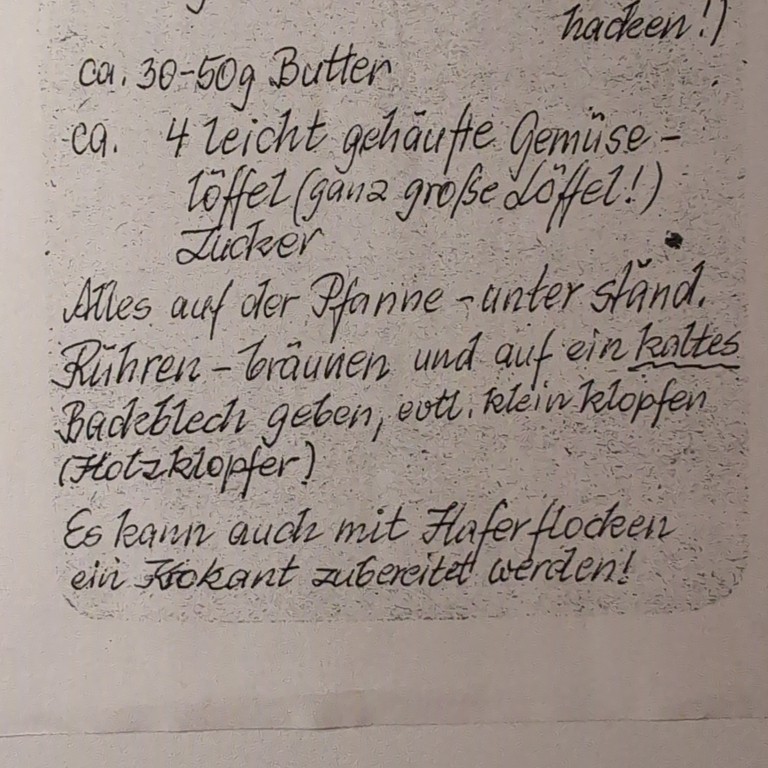 hacken!)
ca. 30-50g Butter
ca. 4 leicht gehäufte Gemüse-
löffel (ganz große Löffel!)
Zucker
Alles auf der Pfanne - unter ständ.
Rühren - bräunen und auf ein kaltes
Backblech geben, evtl. klein klopfen
(Holzklopfer)
Es kann auch mit Haferflocken
ein Krokant zubereitet werden!